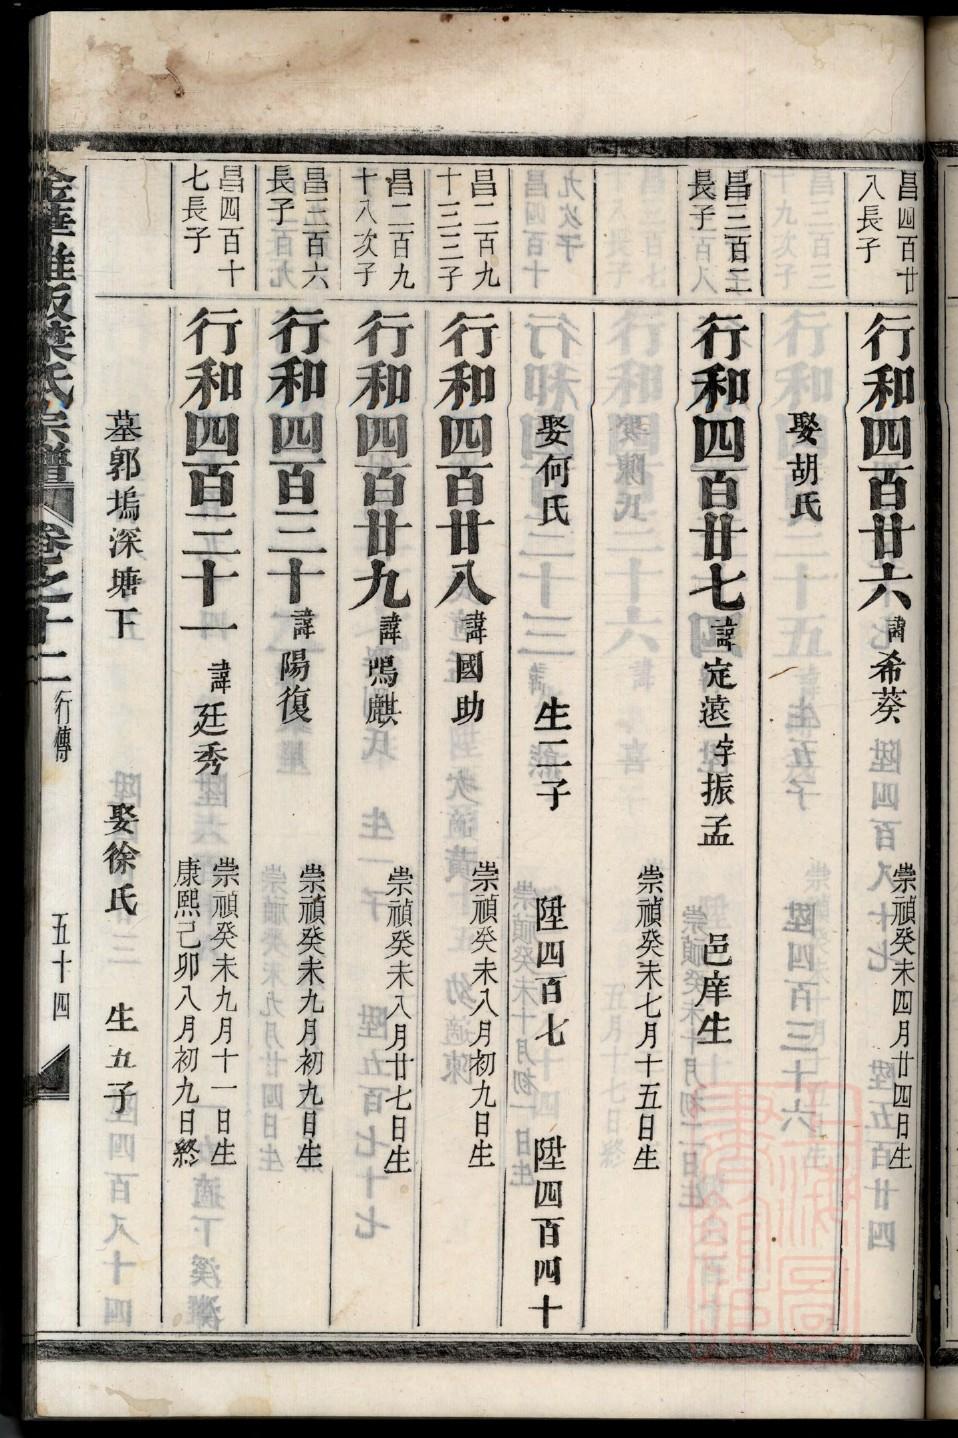 昌四百廿
八長子
行和四百廿六
諱希葵
崇禎癸未四月廿四日生
娶胡氏
昌三百二
長子
行和四百廿七
諱定遠字振孟
邑庠生
崇禎癸未七月十五日生
娶何氏
生二子
陞四百七
陞四百四十
昌二百九
十三三子
行和四百廿八
諱國助
崇禎癸未八月初九日生
昌二百九
十八次子
行和四百廿九
諱鳴麒
崇禎癸未八月廿七日生
昌三百六
長子
行和四百三十
諱陽復
崇禎癸未九月初九日生
昌四百十
七長子
行和四百三十一
諱廷秀
崇禎癸未九月十一日生
康熙己卯八月初九日終
墓郭塢深塘下
娶徐氏
生五子
氏宗譜
卷之十二
行傳
五十四